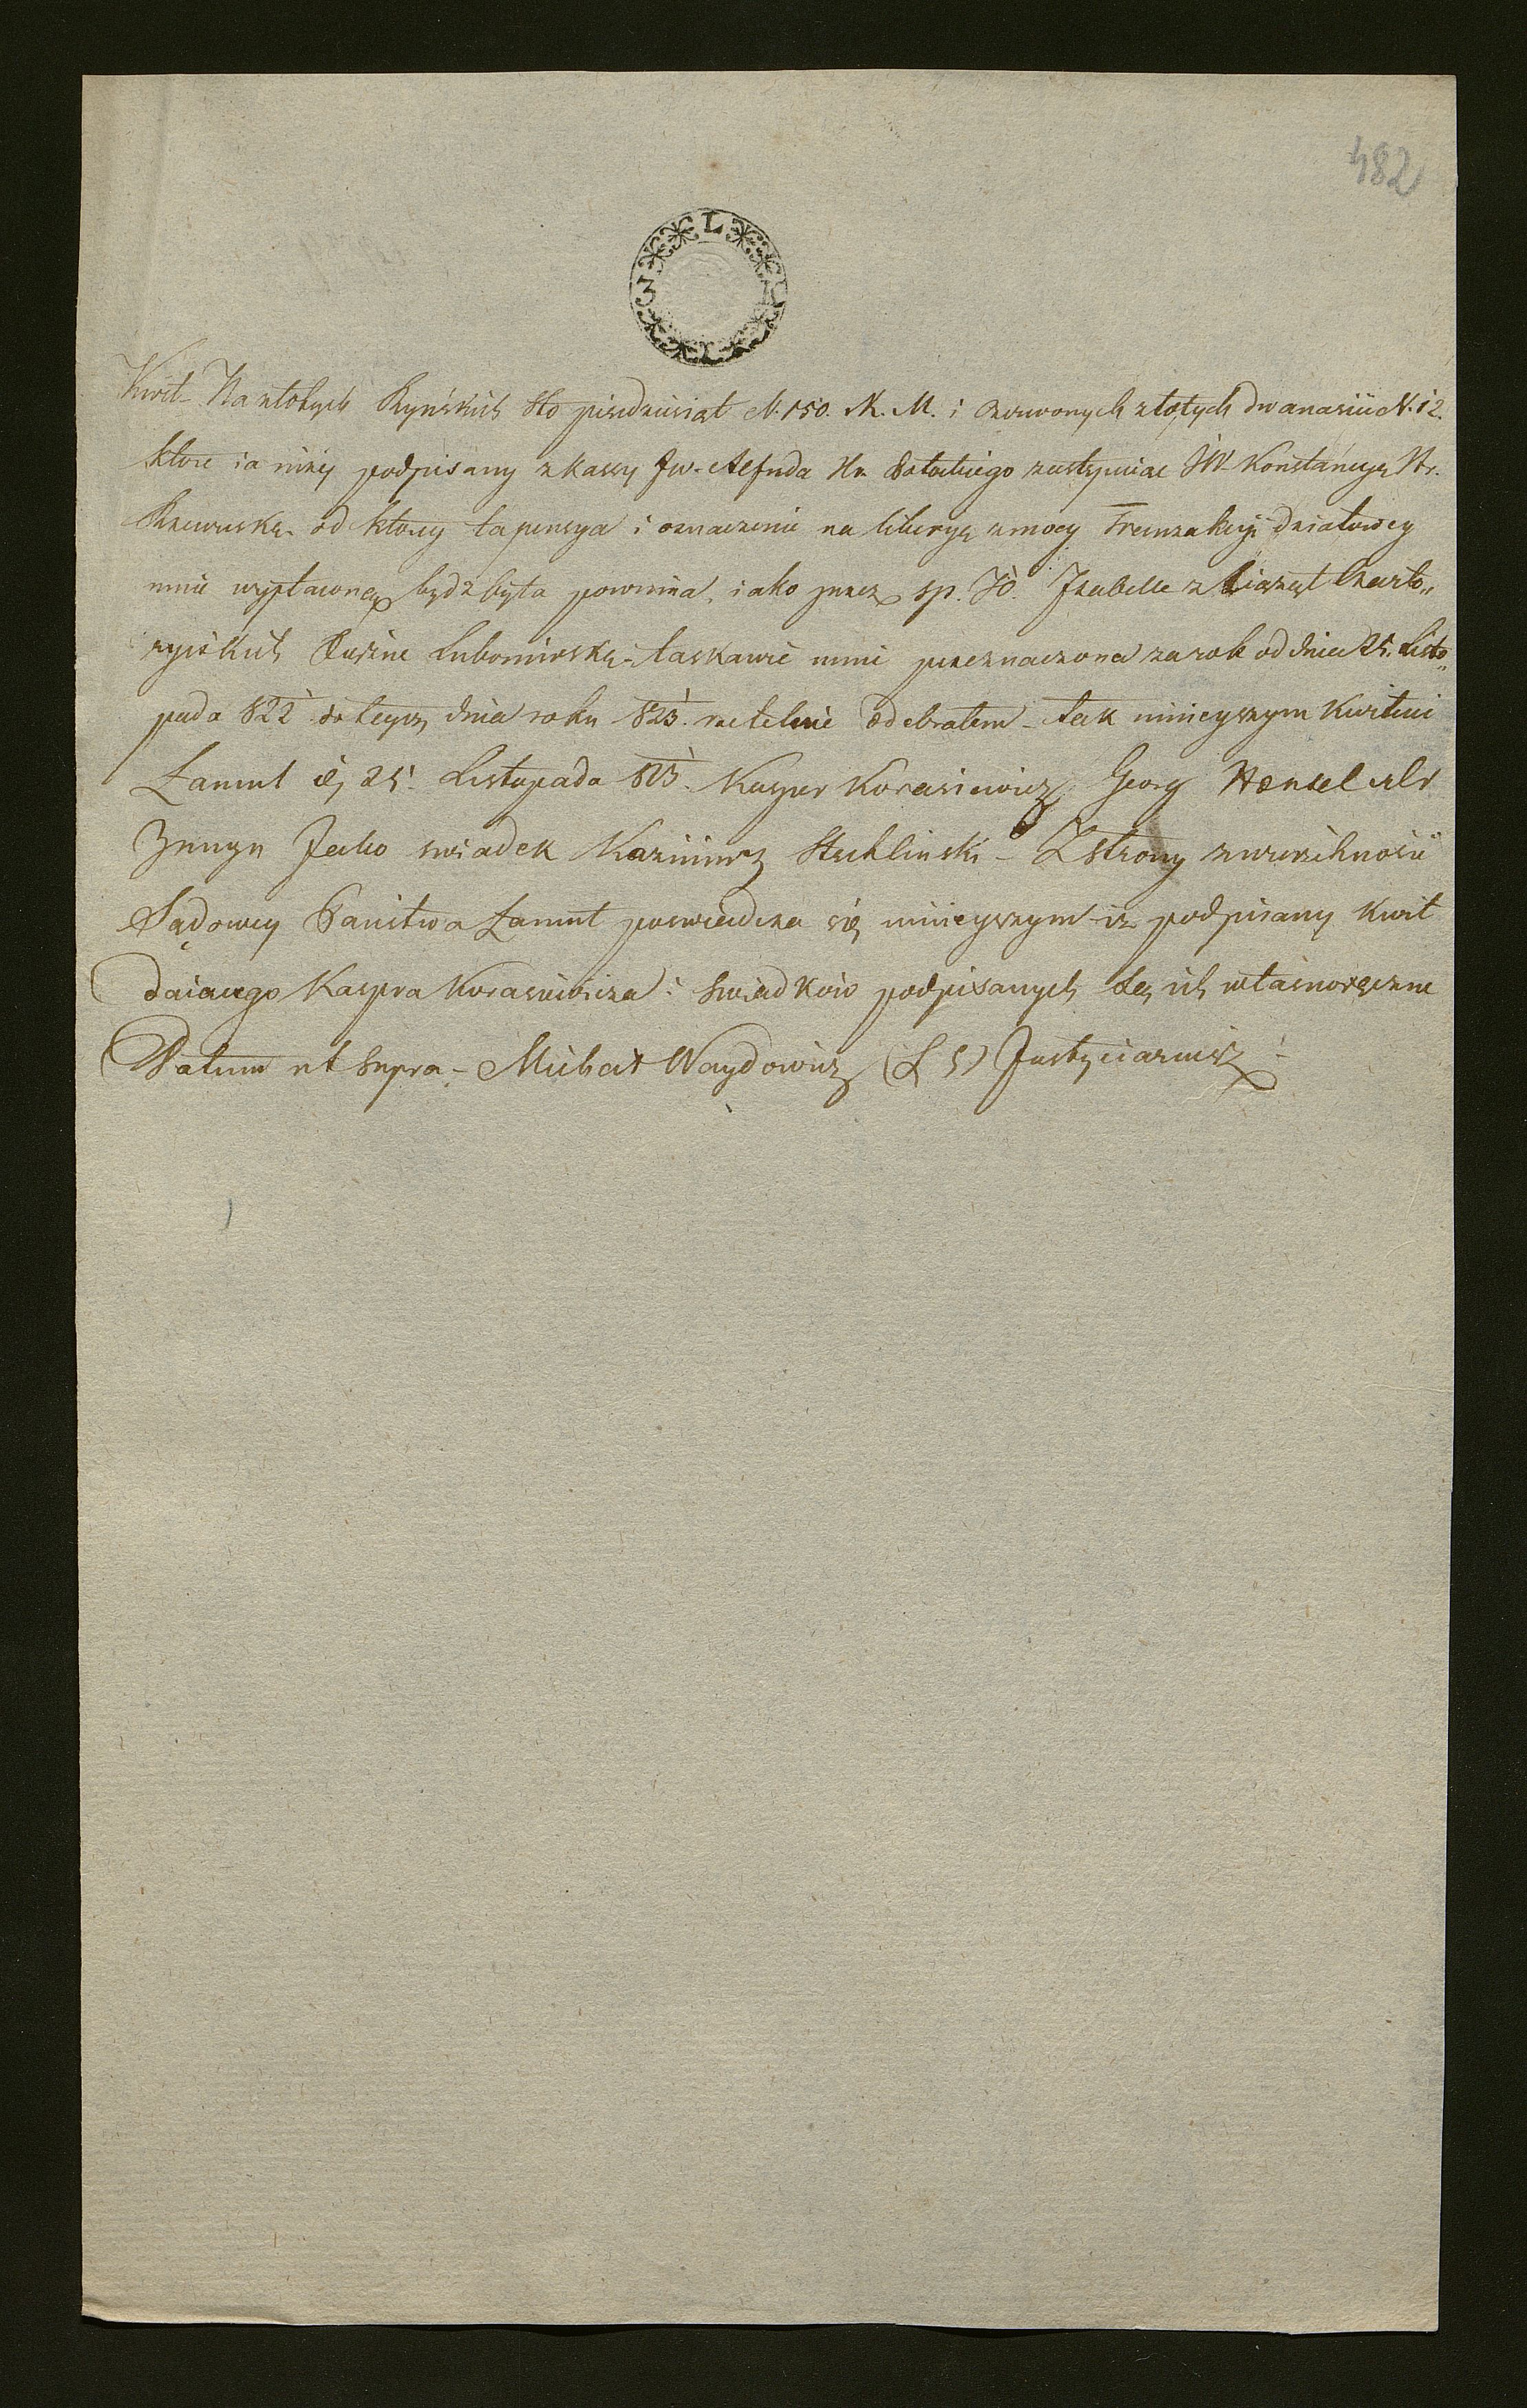 482
L
3 K
Kwit Na złotych Ryńskich Sto piędziesiąt N. 150. M. M. i czerwonych złotych dwanaście N. 12.
ktore ia niżey podpisany z kassy Jw. Alfreda Hr. Potockiego zastępuiąc JW. Konstancyą Hr.
Rzewuską od ktorey ta pensya i oznaczenie na liberyą z mocy Tranzakcyi działowey
mnie wypłaconą bydź była powinna, iako przez sp. JO. Izabellę z Xiążąt Czarto„
ryiskich Xiężnę Lubomirską łaskawie mnie przeznaczona za rok od dnia 25. Listo„
pada 822 do tegoż dnia roku 823. rzetelnie odebrałem tak nineyszym kwituię
Łancut d. 25. Listopada 823. Kasper Korasiewicz Georg Hensel als
Zeuge Jako swiadek Kazimierz Stechlinski - Z strony zwierzchności
Sądowey Państwa Łancut poswiadcza się nineyszym iż podpisany kwit
daiącego Kaspra Korasiewicza i Swiadków podpisanych są ich własnoręczne
Datum ut Supra - Michał Waydowicz (L S) Justycariusz